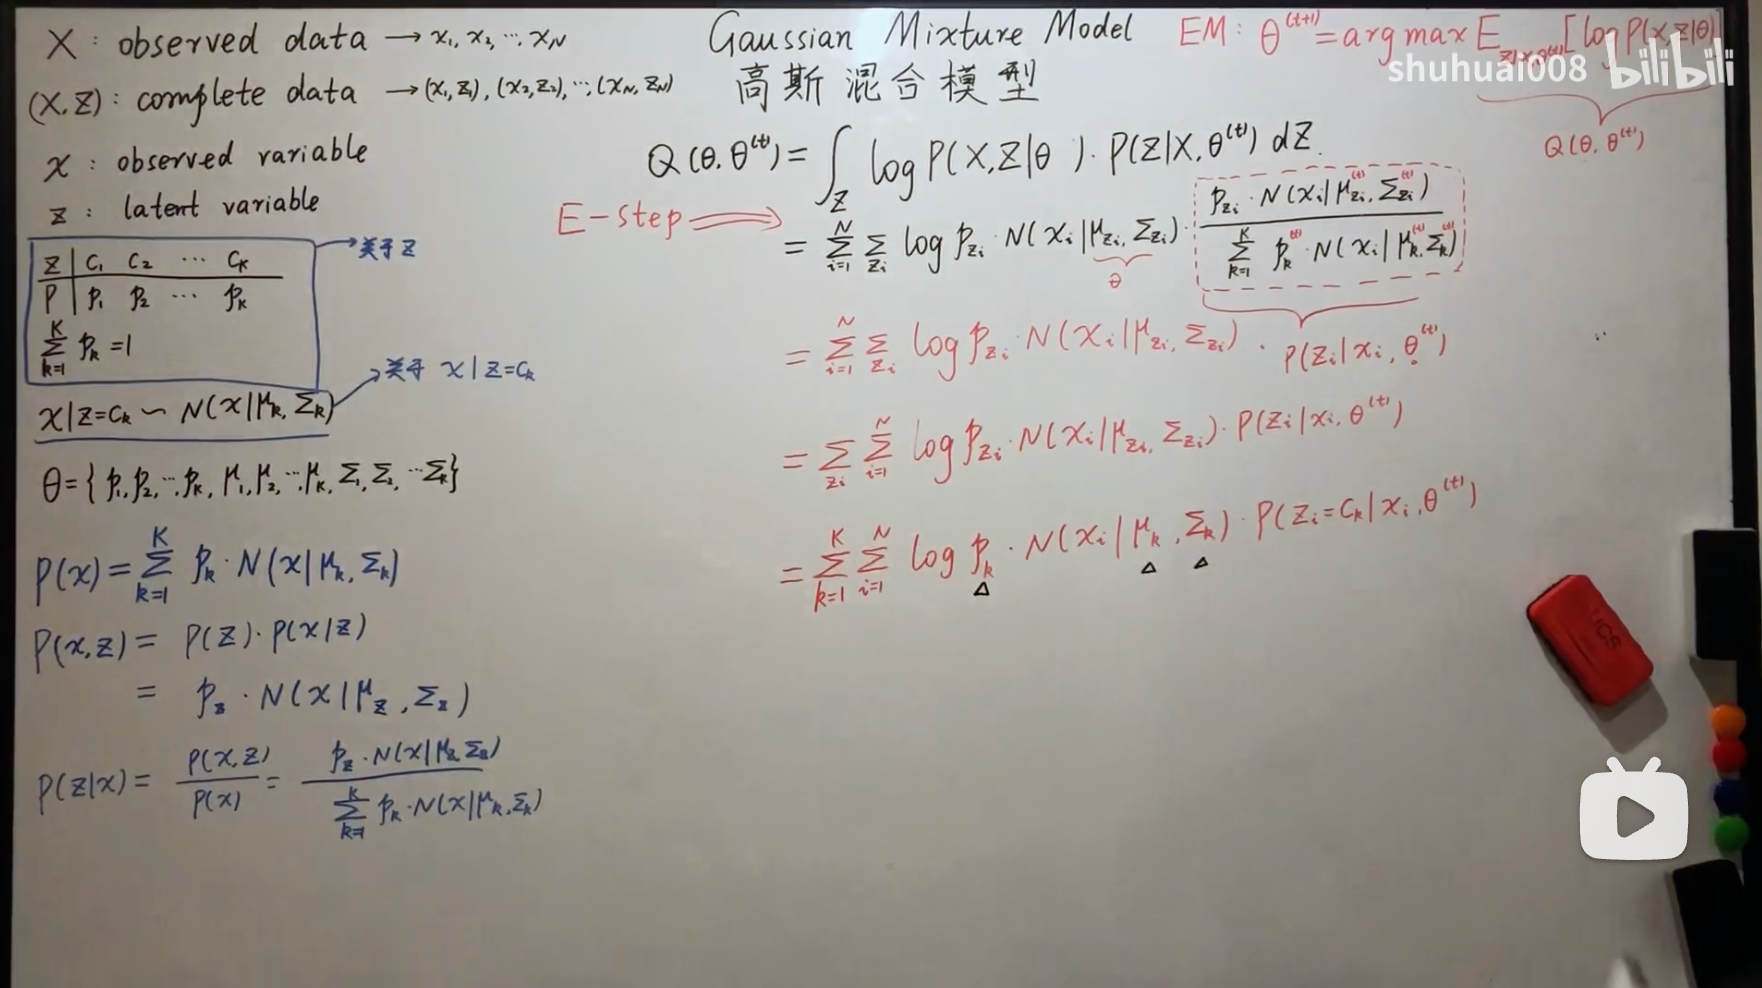 X : observed data → x₁, x₂, ⋯ x_N
(X, Z) : complete data → (x₁, z₁), (x₂, z₂), ⋯, (x_N, z_N)
x : observed variable
z : latent variable
z | C₁ C₂ ⋯ C_K
p | p₁ p₂ ⋯ p_K
∑_{k=1}^{K} p_k = 1
→ 关于 z
x|z=C_k ∼ N(x|μ_k, Σ_k)
→ 关于 x|z=C_k
θ = { p₁, p₂, ⋯, p_K, μ₁, μ₂, ⋯, μ_K, Σ₁, Σ₂, ⋯ Σ_K }
P(x) = ∑_{k=1}^{K} p_k · N(x|μ_k, Σ_k)
P(x, z) = P(z) · P(x|z)
= p_z · N(x|μ_z, Σ_z)
P(z|x) = P(x,z) / P(x) = p_z · N(x|μ_z, Σ_z) / ∑_{k=1}^{K} p_k · N(x|μ_k, Σ_k)
Gaussian Mixture Model
高斯混合模型
EM : θ^{(t+1)} = arg max E_{z|x,θ^{(t)}} [log P(X,Z|θ)]
Q(θ, θ^{(t)})
shuhuai008 bilibili
Q(θ, θ^{(t)}) = ∫_Z log P(X,Z|θ) · P(Z|X,θ^{(t)}) dZ.
E-step ⟹
= ∑_{i=1}^{N} ∑_{z_i} log p_{z_i} · N(x_i|μ_{z_i}, Σ_{z_i}) · p_{z_i} · N(x_i|μ_{z_i}^{(t)}, Σ_{z_i}^{(t)}) / ∑_{k=1}^{K} p_k^{(t)} · N(x_i|μ_k^{(t)}, Σ_k^{(t)})
θ
= ∑_{i=1}^{N} ∑_{z_i} log p_{z_i} · N(x_i|μ_{z_i}, Σ_{z_i}) · P(z_i|x_i, θ^{(t)})
= ∑_{z_i} ∑_{i=1}^{N} log p_{z_i} · N(x_i|μ_{z_i}, Σ_{z_i}) · P(z_i|x_i, θ^{(t)})
= ∑_{k=1}^{K} ∑_{i=1}^{N} log p_k · N(x_i|μ_k, Σ_k) · P(z_i=C_k|x_i, θ^{(t)})
△ △ △